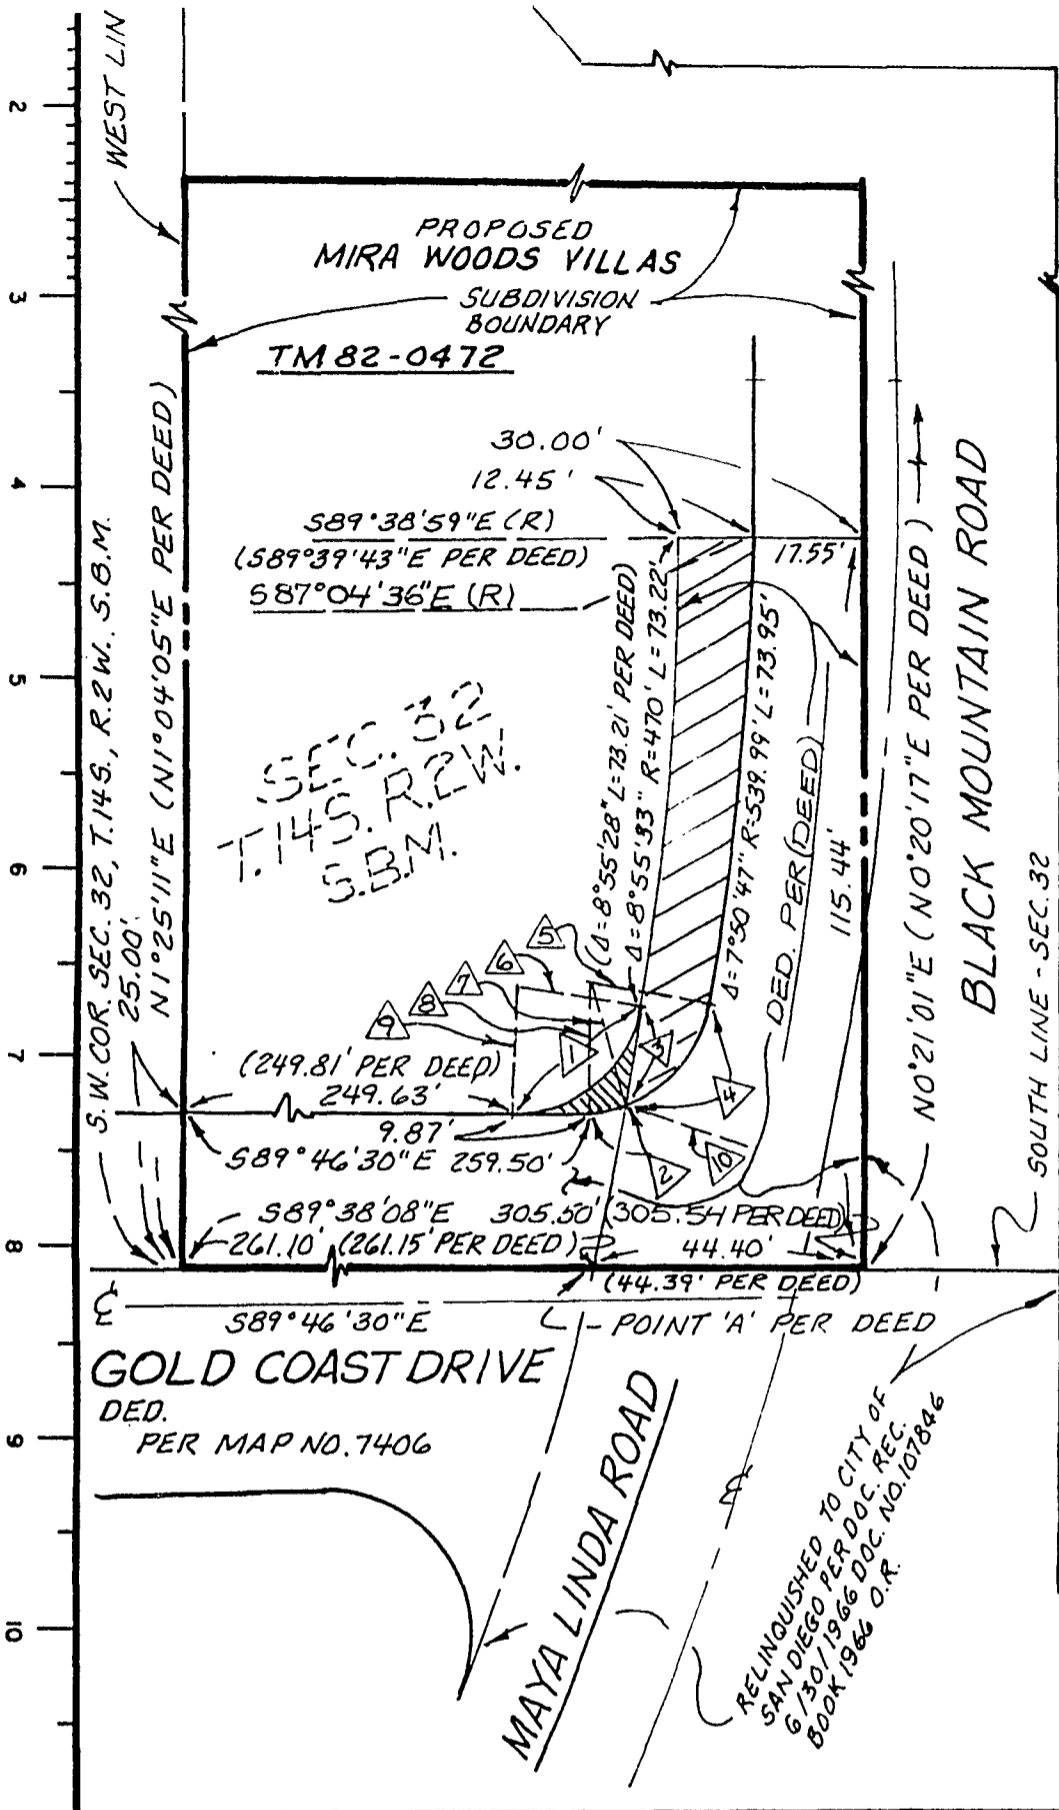 WEST LIN
2
3
4
5
6
7
8
9
10
PROPOSED
MIRA WOODS VILLAS
SUBDIVISION
BOUNDARY
TM 82-0472
30.00'
12.45'
S89°38'59"E (R)
(S89°39'43"E PER DEED)
S87°04'36"E (R)
17.55'
S.W. COR. SEC. 32, T.14S., R.2W. S.B.M.
25.00'
N1°25'11"E (N1°04'05"E PER DEED)
SEC. 32
T.14S. R.2W.
S.B.M.
(Δ=8°55'28" L=73.21' PER DEED)
Δ=8°55'33" R=470' L=73.22'
Δ=7°50'47" R=539.99' L=73.95'
DED. PER (DEED)
115.44'
N0°21'01"E (N0°20'17"E PER DEED)
BLACK MOUNTAIN ROAD
SOUTH LINE - SEC. 32
5
6
7
8
9
1
3
4
2
10
(249.81' PER DEED)
249.63'
9.87'
S89°46'30"E 259.50'
S89°38'08"E 305.50' (305.54 PER DEED)
261.10' (261.15' PER DEED)
44.40'
(44.39' PER DEED)
S89°46'30"E
POINT 'A' PER DEED
GOLD COAST DRIVE
DED.
PER MAP NO. 7406
MAYA LINDA ROAD
RELINQUISHED TO CITY OF
SAN DIEGO PER DOC. REC.
6/30/1966 DOC. NO. 107846
BOOK 1966 O.R.